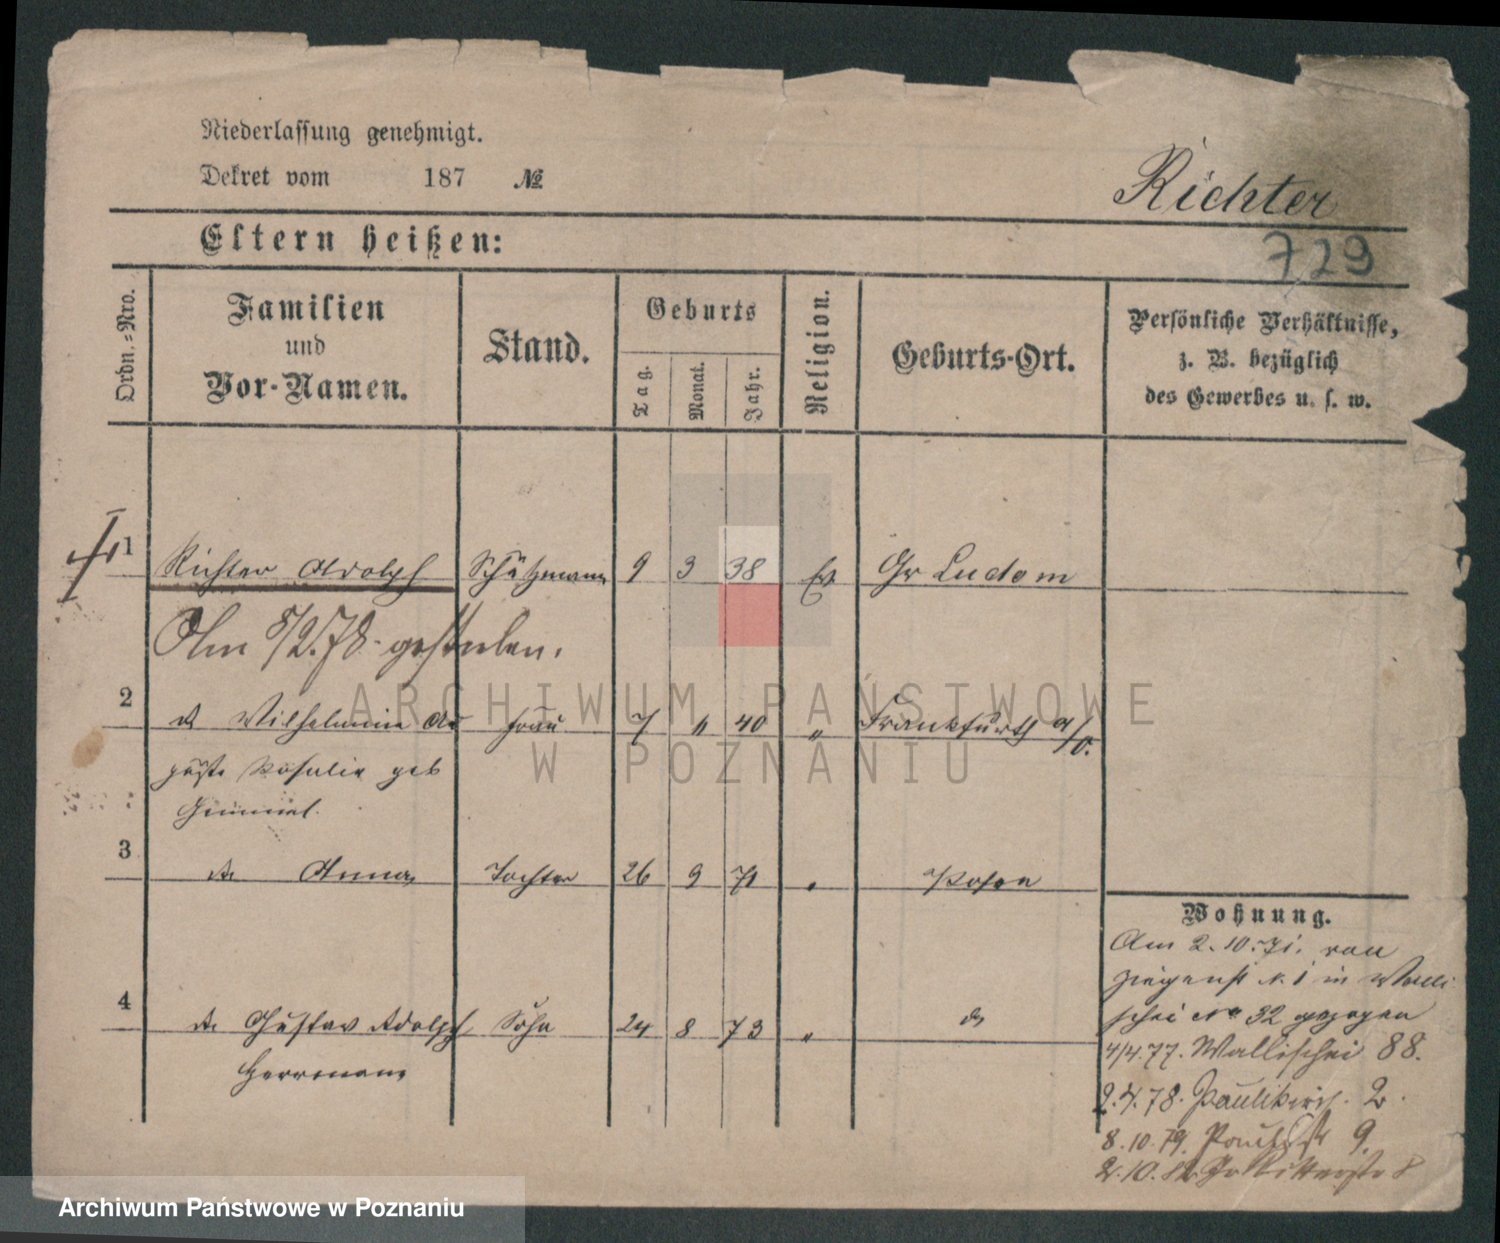 Niederlassung genehmigt.
Dekret vom 187 №
Richter
Eltern heißen:
729
Ordn.-Nro.
Familien
und
Vor-Namen.
Stand.
Geburts
Tag.
Monat.
Jahr.
Religion.
Geburts-Ort.
Persönliche Verhältnisse,
z. B. bezüglich
des Gewerbes u. s. w.
1 Richter Adolph Schutzmann 9 3 38 Ev Gr Ludom
Am 8/2.78 gestorben.
2 do Wilhelmine Au Frau 7 " 40 " Frankfurth a/O.
guste Rosalie geb
3 do Anna Tochter 26 9 71 " Posen
Wohnung.
Am 2.10.71. von
Ziegenst N. 1 in Walli
schei No 32 gezogen
4 do Gustav Adolph Sohn 24 8 73 " do
Herrmann
4/4.77. Wallischei 88.
2.4.78. Paulikirch. 2.
8.10.79. Paulistr 9.
2.10.82 Gr Ritterstr 8
ARCHIWUM PAŃSTWOWE
W POZNANIU
Archiwum Państwowe w Poznaniu